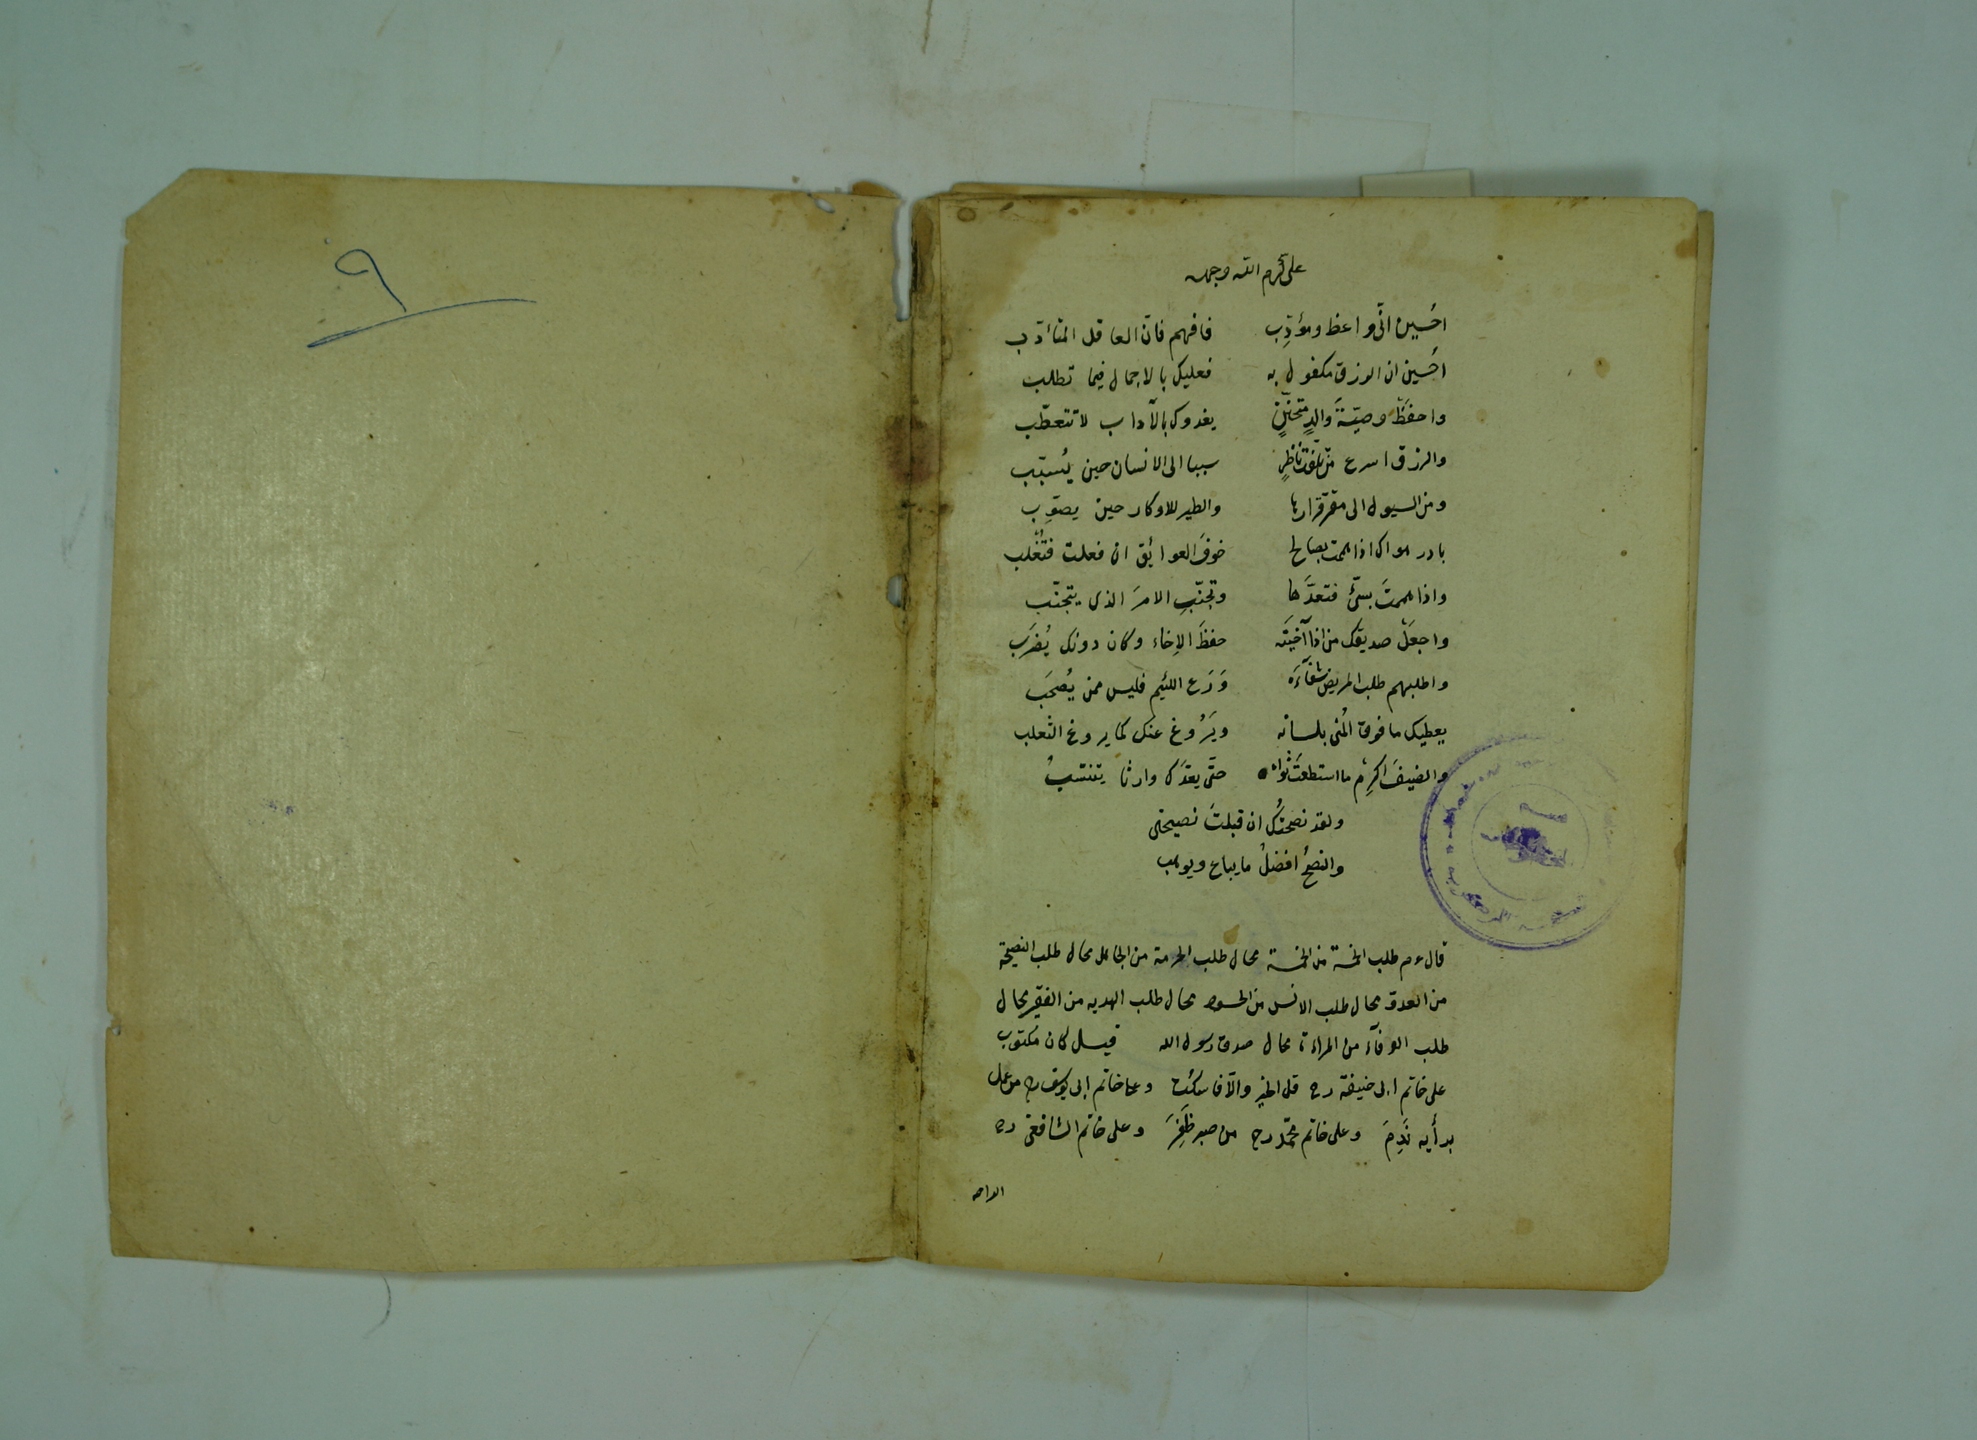 ٩
علی کرم الله وجهه
احُسين انّی واعظ ومؤدِّب فافهم فانّ العاقل المتأدّب
احُسين ان الرزق مكفول به فعليك بالاجمال فيما تطلب
واحفَظْ وصيّةَ والدٍ متحنّنٍ يغدوك بالآداب لا تتعطّب
والرزق اسرع من تلفّت ناظرٍ سببا الى الانسان حين يُسبّب
ومن السيول الى مقرّ قرارها والطير للاوكار حين يصوّب
بادر هواك اذا هممت بصالح خوفَ العوائق ان فعلت فتُغلب
واذا هممتَ بسيّئ فتعدَّها وتجنّبِ الامرَ الذى يتجنّب
واجعَلْ صديقك من اذا آخيتَه حفظَ الإخاء وكان دونك يُضرَب
واطلبهم طلب المريض شفآءَه وَدَع اللئيم فليس ممن يُصحَب
يعطيك ما فوق المُنى بلسانه ويَرُوغ عنك كما يروغ الثعلب
والضيفَ اكرِمْ ما استطعتَ ثواه حتّى يعدّك وارثا يتنسّبُ
ولقد نصحتُك ان قبلتَ نصيحتى
والنصحُ افضلُ ما يباع ويوهب
قال عم طلب من محال طلب الحرمة من الجاهل محال طلب النصيحة
من العدوّ محال طلب الانس من الحسود محال طلب الهديه من الفقير محال
طلب الوفآء من المراءة محال صدق رسول الله قيل كان مكتوب
على خاتم ابى حنيفة رح قل الخير والّا فاسكت وعلى خاتم ابى يوسف رح من عمل
برأيه نَدِمَ وعلى خاتم محمّد رح من صبر ظَفِرَ وعلى خاتم الشافعى رح